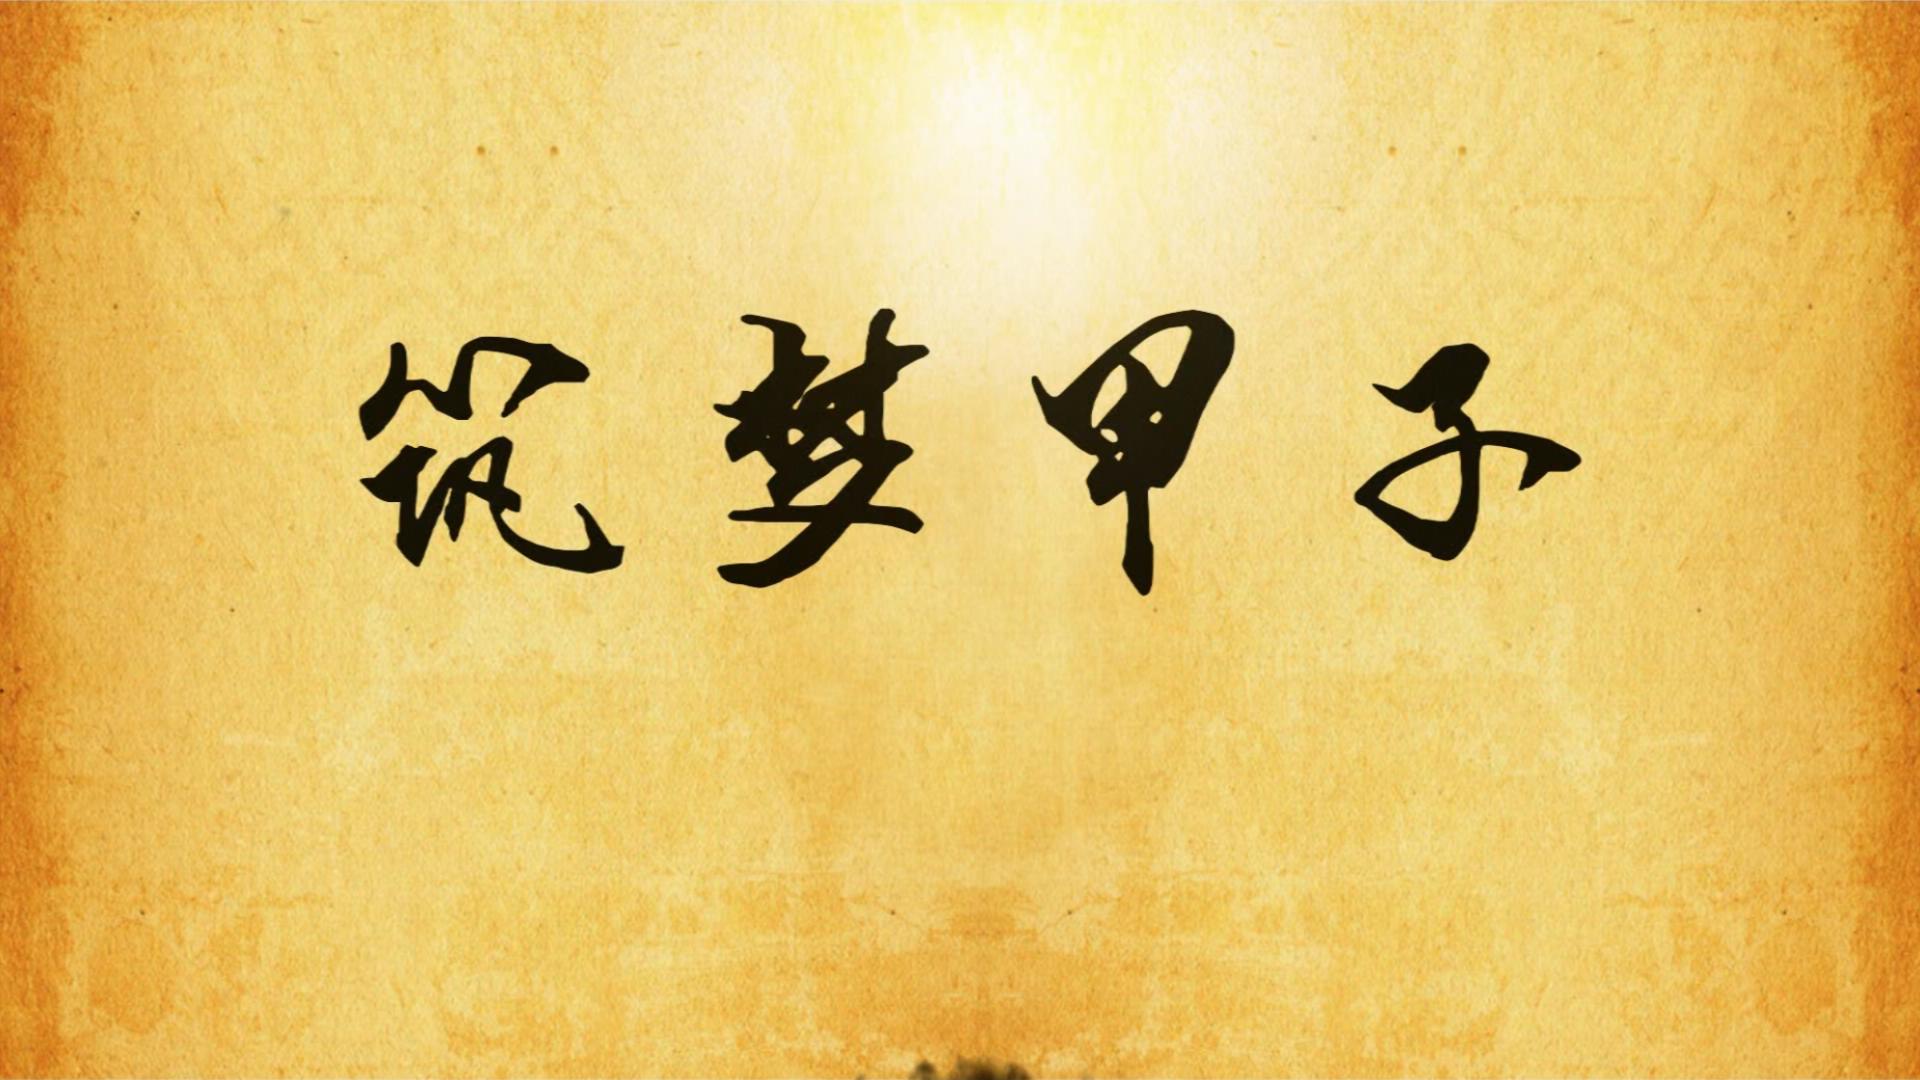 筑梦甲子